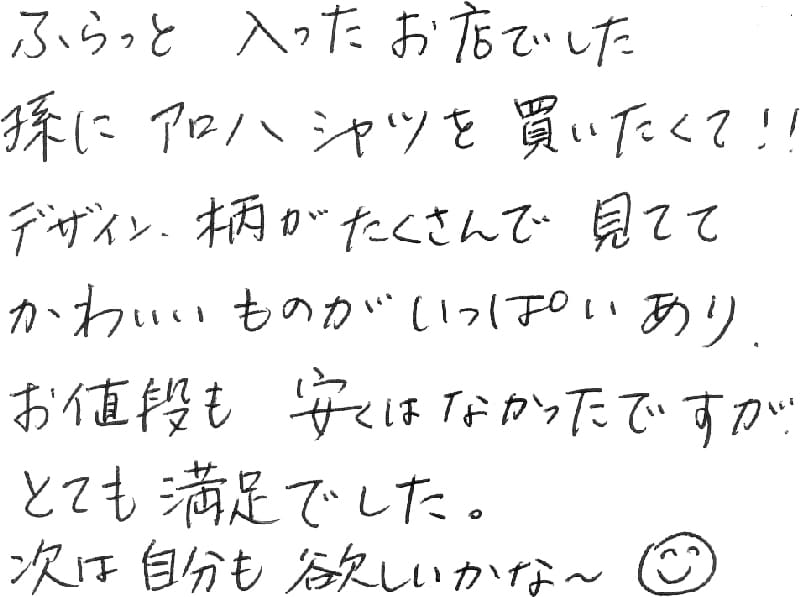 ふらっと 入ったお店でした
孫に アロハシャツを 買いたくて!!
デザイン、柄がたくさんで 見てて
かわいいものがいっぱいあり、
お値段も 安くはなかったですが、
とても満足でした。
次は自分も欲しいかな〜